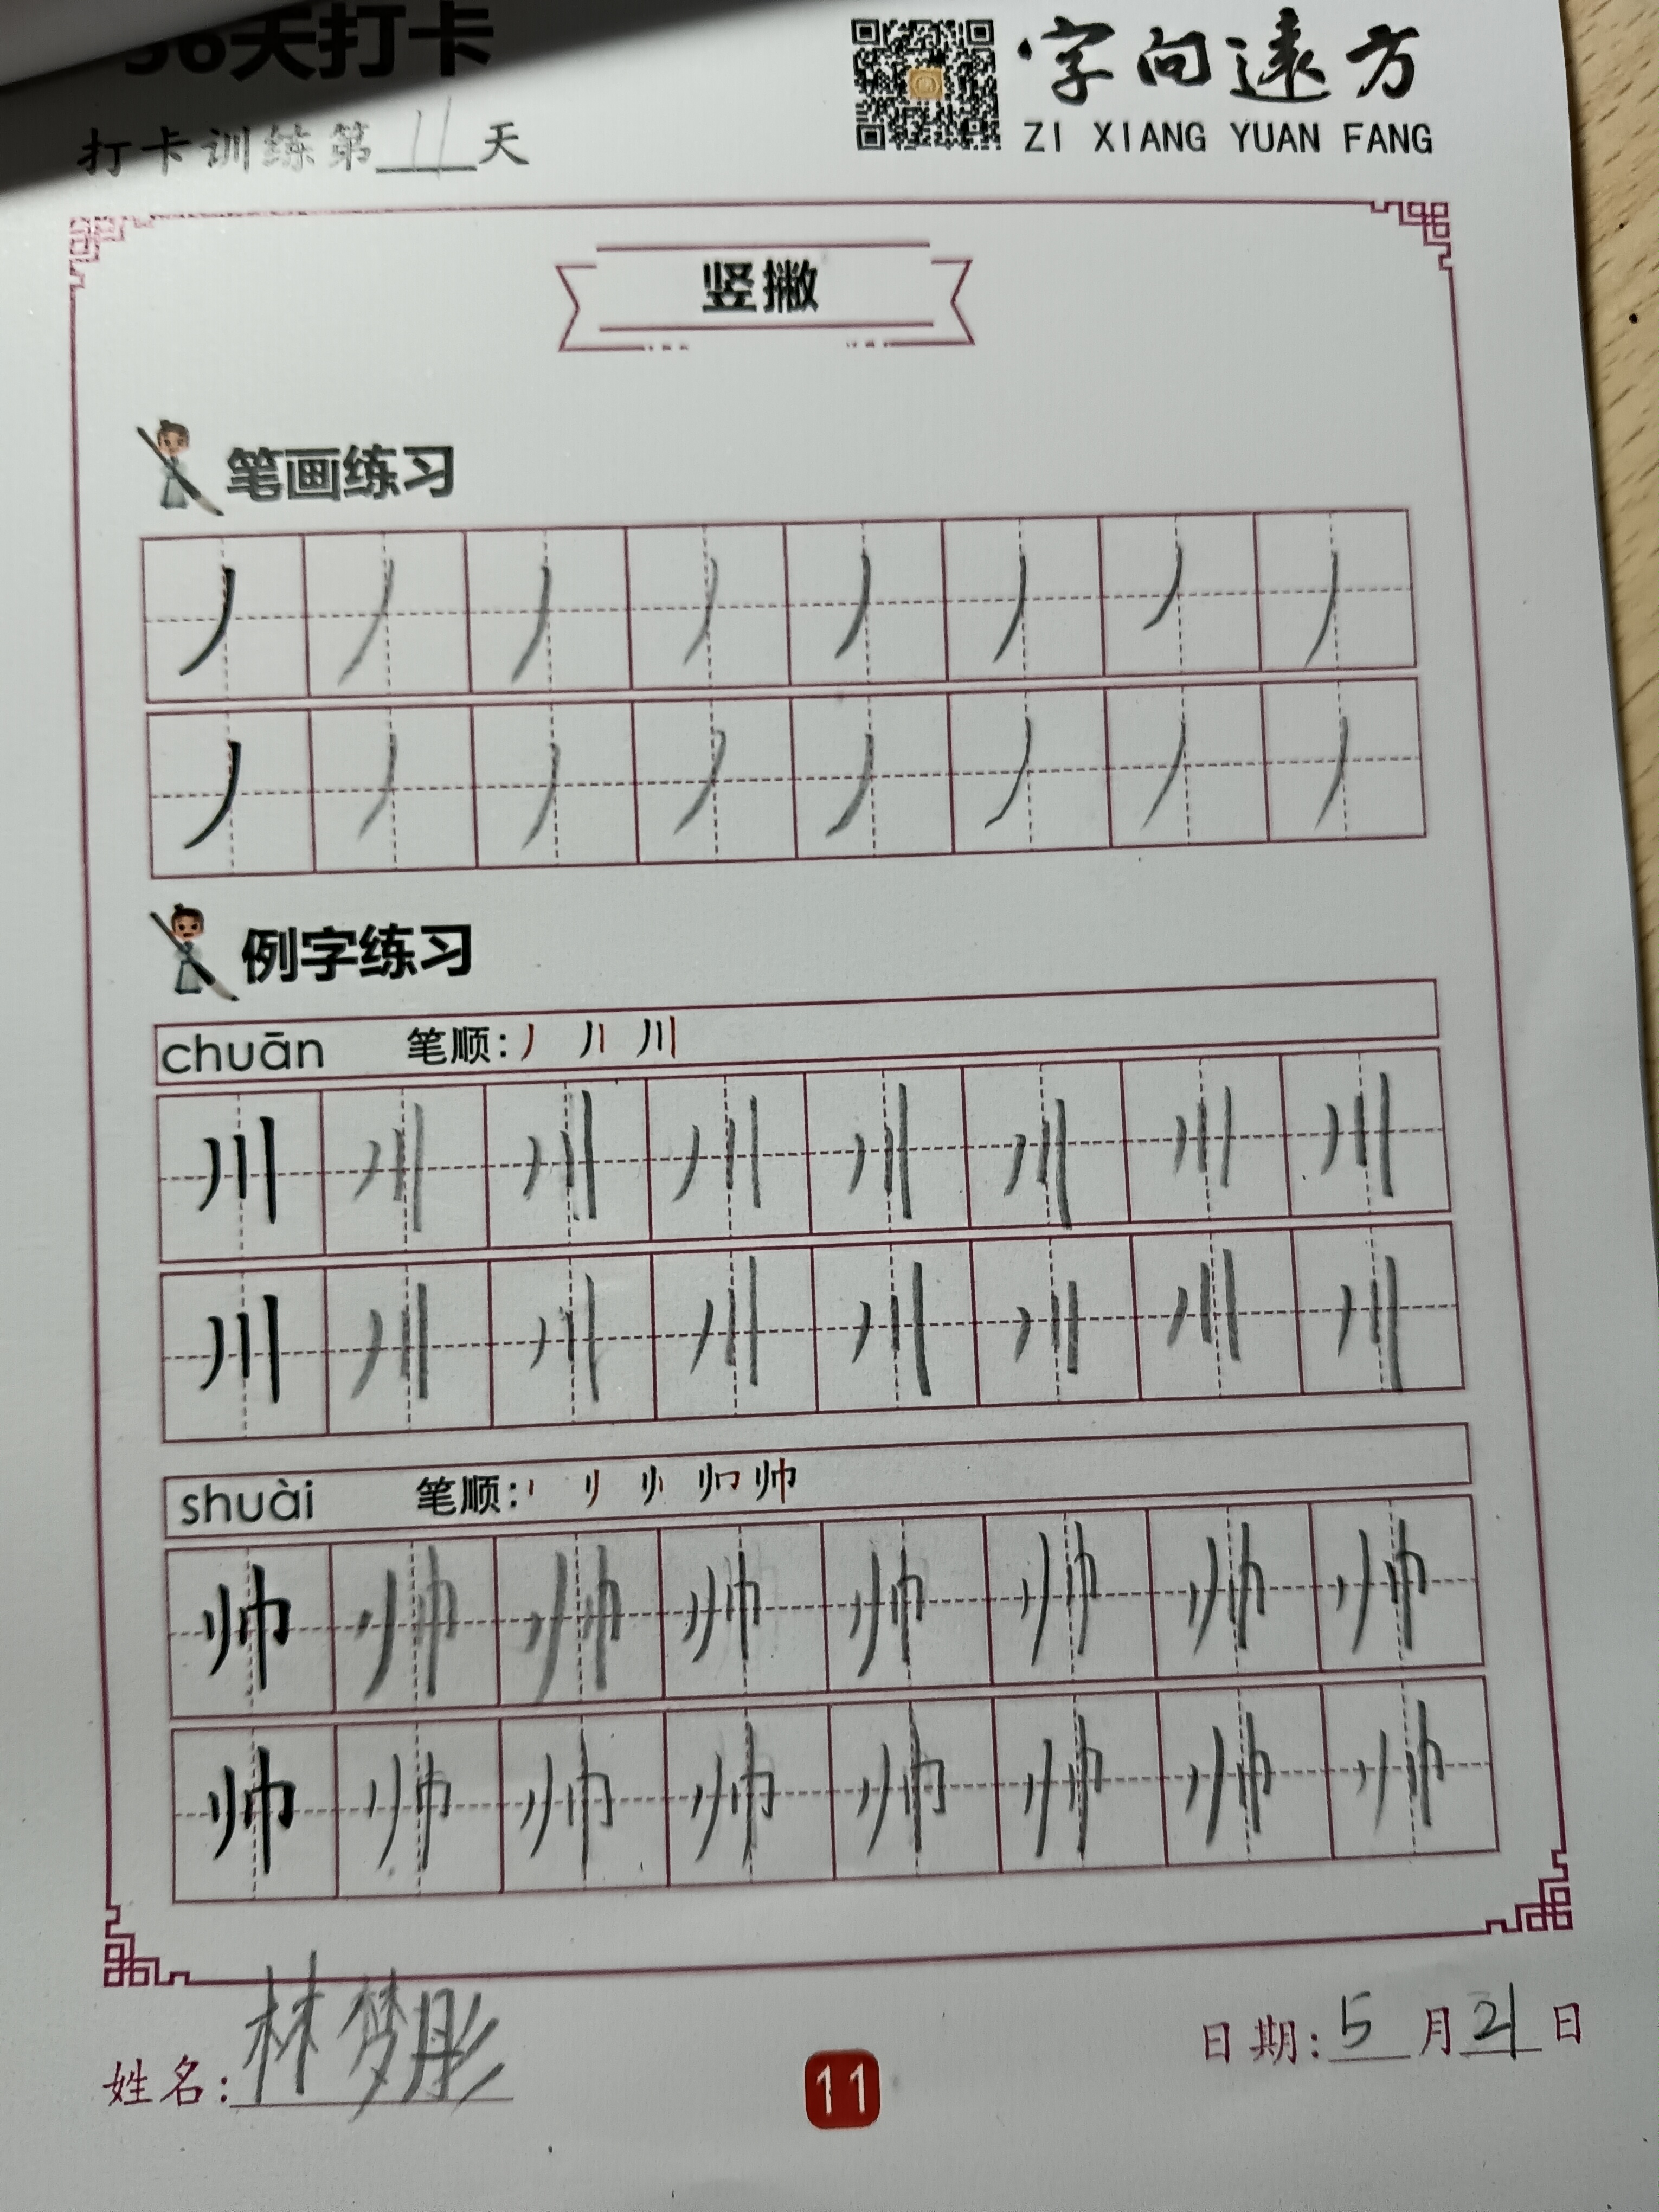 36天打卡
打卡训练第11天
字向遠方
ZI XIANG YUAN FANG
竖撇
笔画练习
丿丿丿丿丿丿丿丿
丿丿丿丿丿丿丿丿
例字练习
chuān 笔顺: 丿 丿丨 川
川川川川川川川川
川川川川川川川川
shuài 笔顺: 帅
帅帅帅帅帅帅帅帅
帅帅帅帅帅帅帅帅
姓名: 林梦彤
日期: 5月21日
11